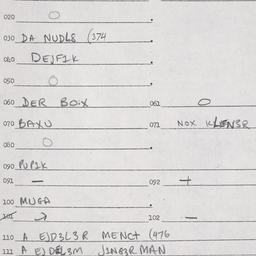 020 O
030 DA NUDLS (374
040 DEJFIK
050 O
060 DER BOIX 061 O
070 BAXU 071 NOX KLENSR
080 O
090 PUPIK
091 — 092 +
100 MUGA
101 → 102 —
110 A EJD3L3R MENCT (476
111 A EJDEL3M JINGER MAN